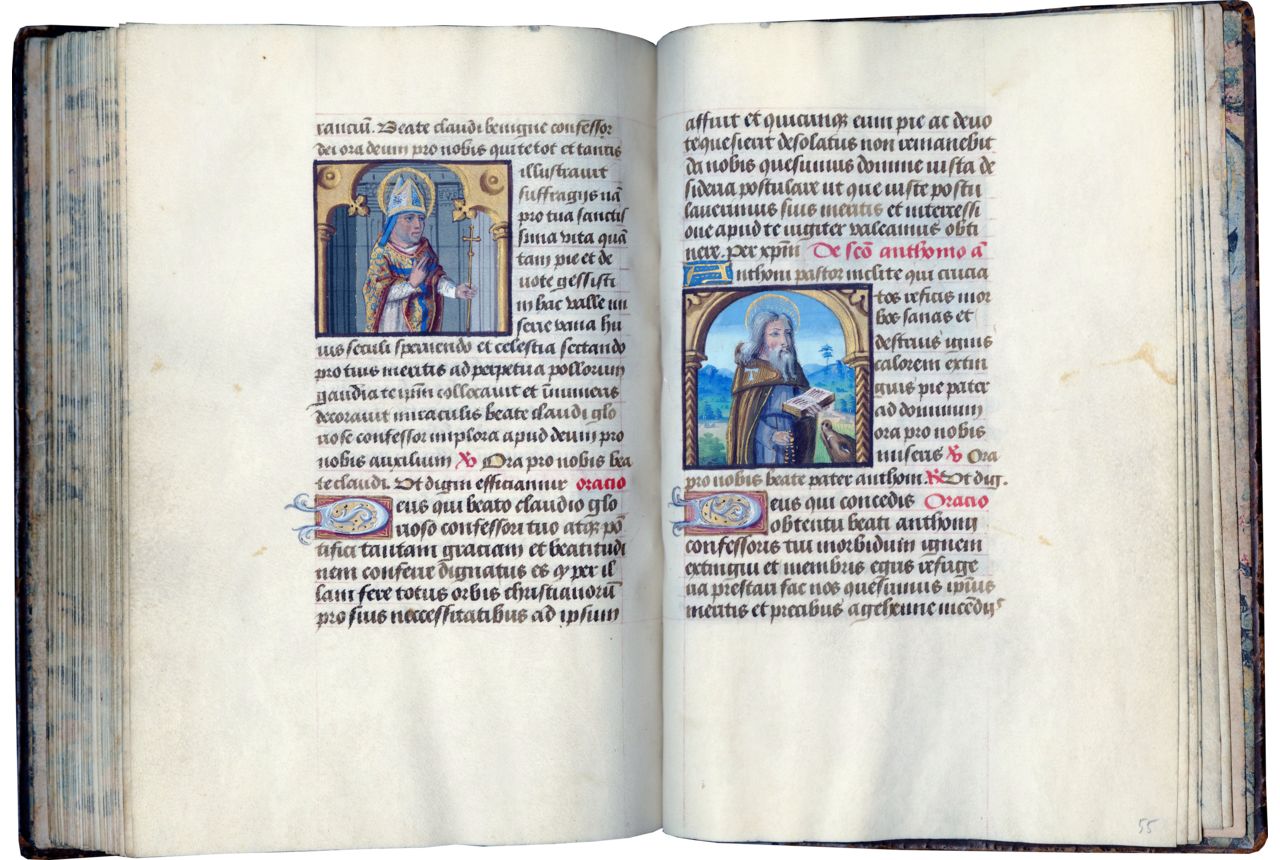 rantiũ. Beate claudi benigne confessor
dei ora deum pro nobis qui te tot et tantis
illustravit
suffragijs nã
pro tua sanctis
sima vita quã
tam pie et de
vote gessisti
in hac valle mi
serie vana hu
ius seculi spernendo et celestia sectando
pro tuis meritis ad perpetua pollorum
gaudia te ipm̃ collocavit et ĩnumeris
decoravit miraculis beate claudi glo
riose confessor implora apud deum pro
nobis auxilium ℣ Ora pro nobis bea
te claudi. Vt digni efficiamur oracio
Deus qui beato claudio glo
rioso confessori tuo atqꝫ põ
tifici tantam graciam et beatitudi
nem conferre dignatus es ꝙ per il
lam fere totus orbis christianorũ
pro suis neccessitatibus ad ipsum
affluit et quicunqꝫ eum pie ac devo
te quesierit desolatus non remanebit
da nobis quesumus domine iusta de
sideria postulare ut que iuste postu
laverimus suis meritis et intercessi
one apud te iugiter valeamus obti
nere. Per xp̃m De sc̃o anthonio ã
Anthoni pastor inclite qui crucia
tos reficis mor
bos sanas et
destruis ignis
calorem extin
guis pie pater
ad dominum
ora pro nobis
miseris ℣ Ora
pro nobis beate pater anthoni ℟ Vt dig.
Deus qui concedis Oracio
obtentu beati anthonij
confessoris tui morbidum ignem
extingui et membris egris refuge
ria prestari fac nos quesumus ipi̇us
meritis et precibus a gehenne incendijs
55